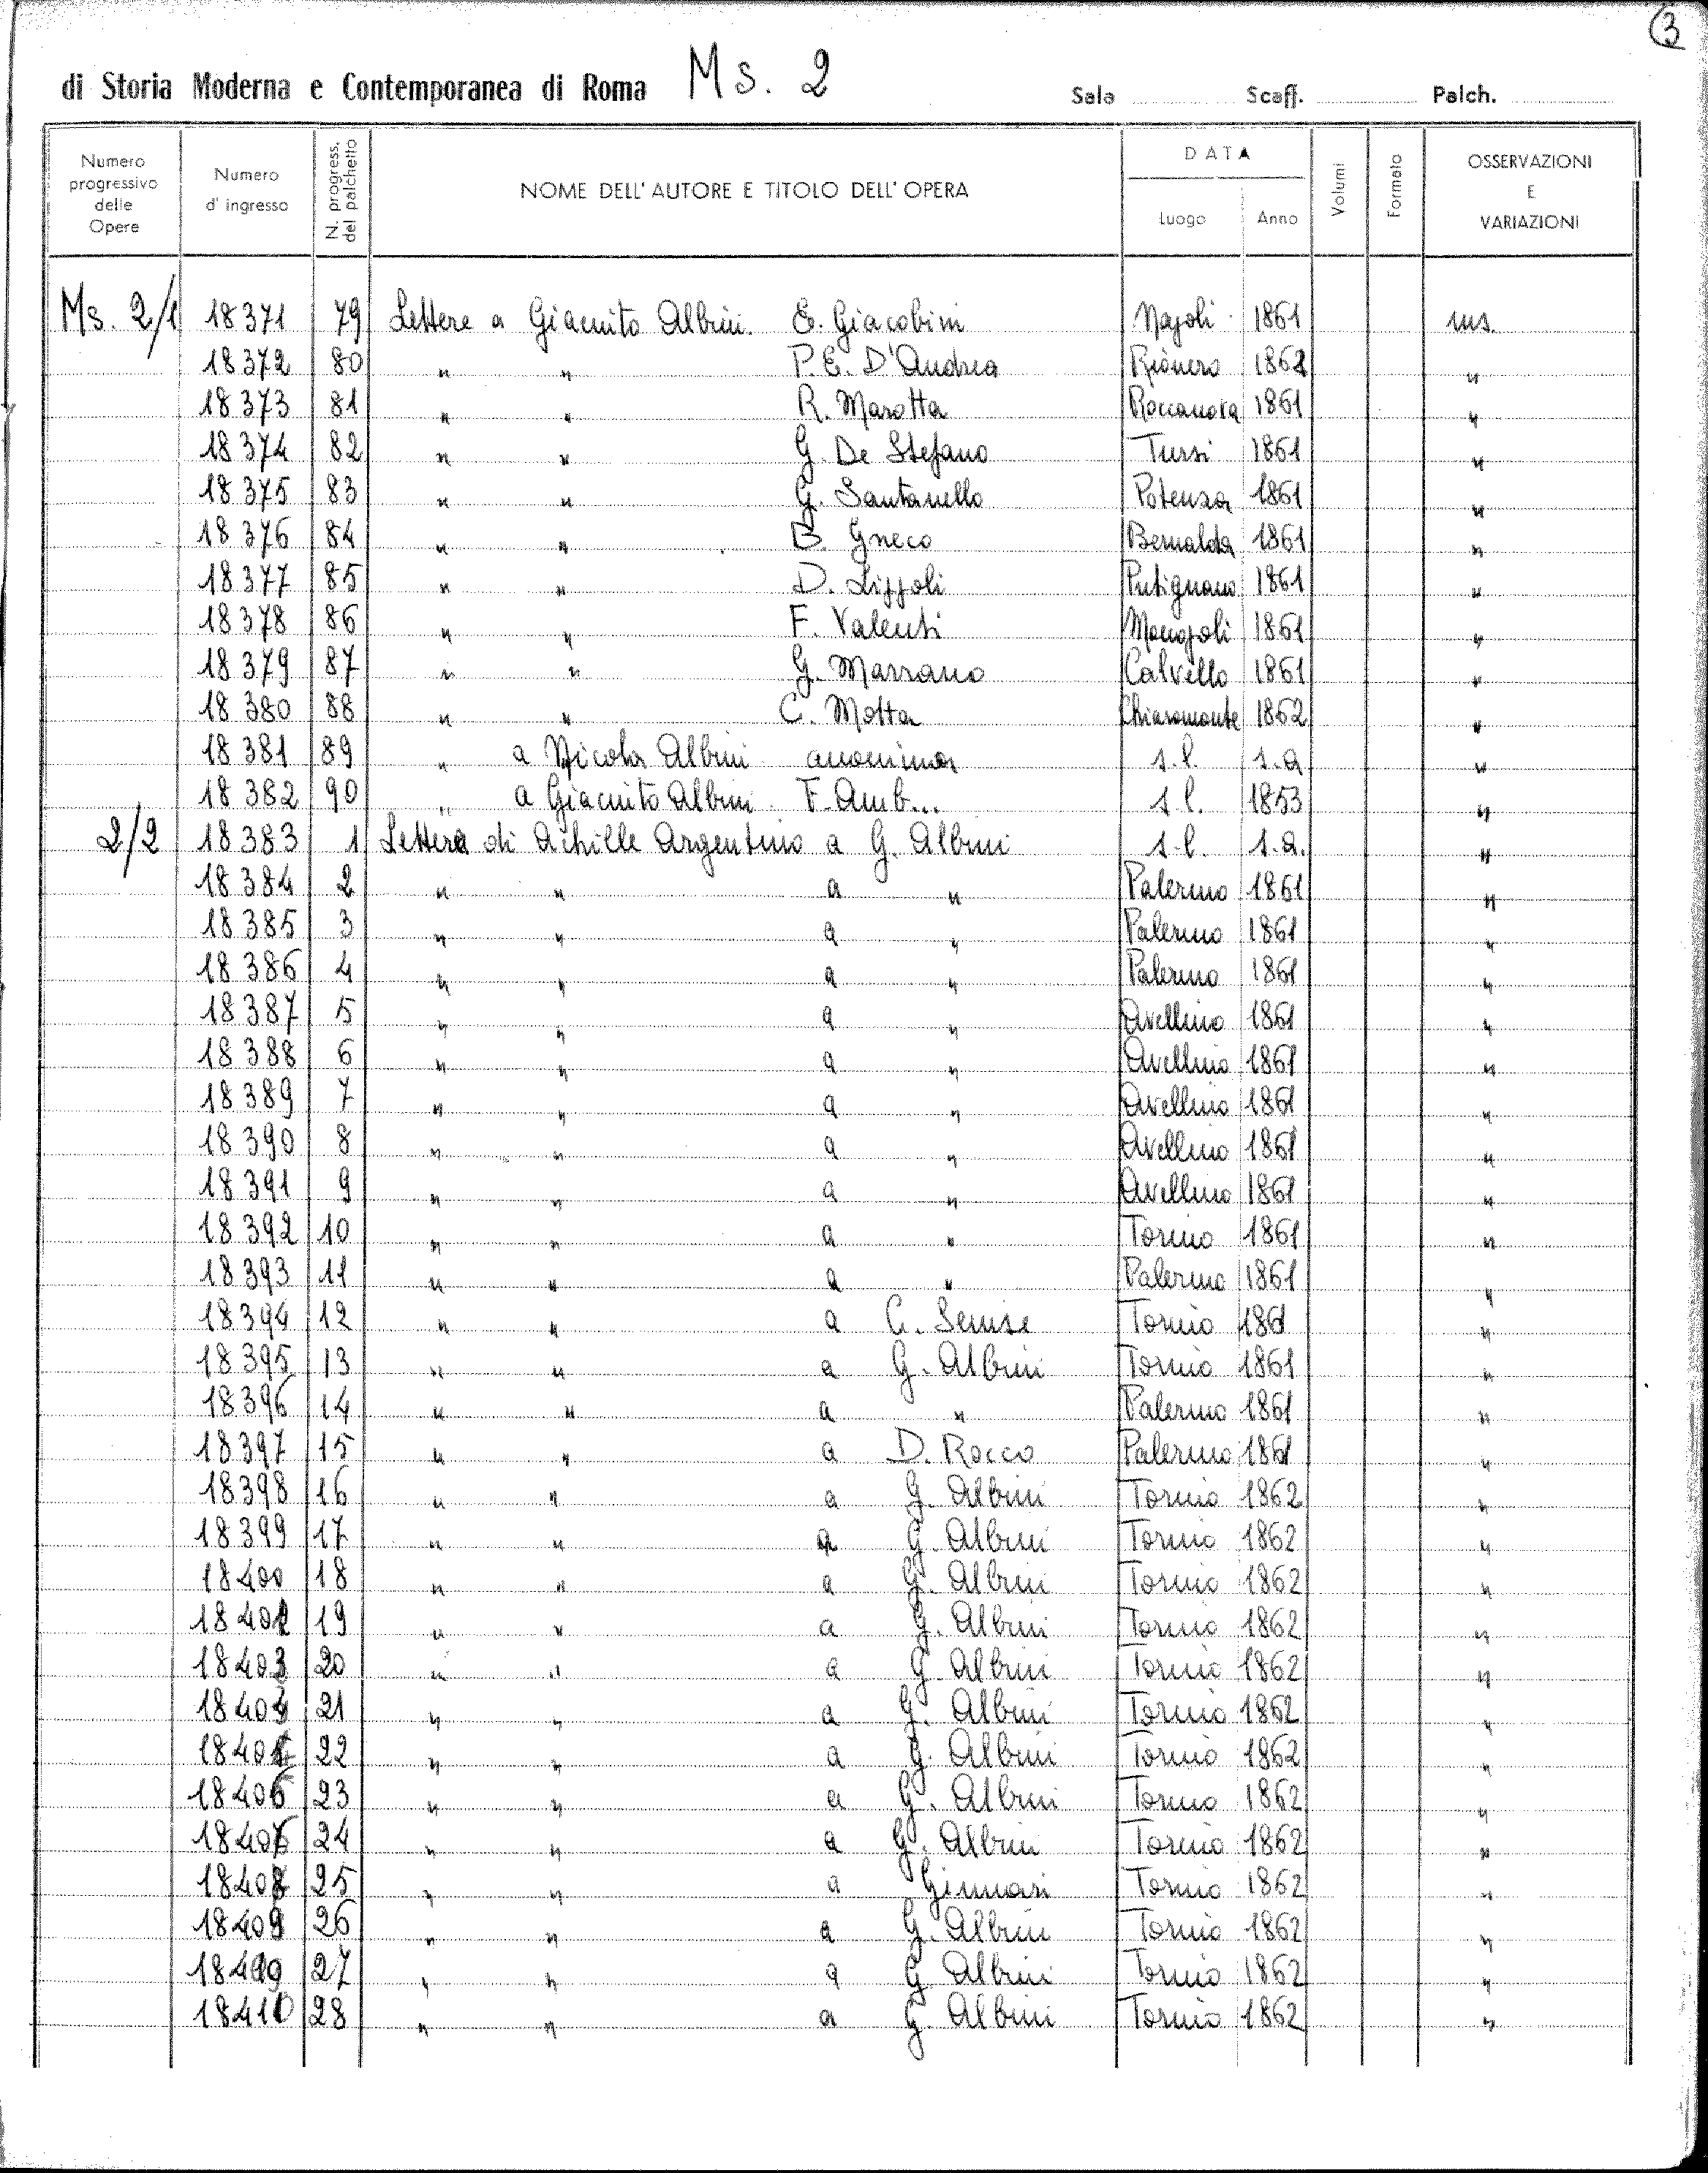 3
di Storia Moderna e Contemporanea di Roma Ms. 2 Sala Scaff. Palch.
Numero progressivo delle Opere Numero d'ingresso N. progress. del palchetto NOME DELL'AUTORE E TITOLO DELL'OPERA DATA Luogo Anno Volumi Formato OSSERVAZIONI E VARIAZIONI
Ms. 2/1 18371 79 Lettere a Giacinto Albini E. Giacobini Napoli 1861 ms.
18372 80 " " P.E. D'Andrea Rionero 1862 "
18373 81 " " R. Marotta Roccanova 1861 "
18374 82 " " G. De Stefano Tursi 1861 "
18375 83 " " G. Santanello Potenza 1861 "
18376 84 " " B. Gneco Bernalda 1861 "
18377 85 " " D. Lippoli Putignano 1861 "
18378 86 " " F. Valenti Monopoli 1861 "
18379 87 " " G. Marrano Calvello 1861 "
18380 88 " " C. Motta Chiaromonte 1862 "
18381 89 " a Nicola Albini anonimo s.l. s.a "
18382 90 " a Giacinto Albini F. Amb... s.l. 1853 "
2/2 18383 1 Lettera di Achille Argentino a G. Albini s.l. s.a. "
18384 2 " " a " Palermo 1861 "
18385 3 " " a " Palermo 1861 "
18386 4 " " a " Palermo 1861 "
18387 5 " " a " Avellino 1861 "
18388 6 " " a " Avellino 1861 "
18389 7 " " a " Avellino 1861 "
18390 8 " " a " Avellino 1861 "
18391 9 " " a " Avellino 1861 "
18392 10 " " a " Torino 1861 "
18393 11 " " a " Palermo 1861 "
18394 12 " " a C. Senise Torino 1861 "
18395 13 " " a G. Albini Torino 1861 "
18396 14 " " a " Palermo 1861 "
18397 15 " " a D. Rocco Palermo 1861 "
18398 16 " " a G. Albini Torino 1862 "
18399 17 " " a G. Albini Torino 1862 "
18400 18 " " a G. Albini Torino 1862 "
19 " " a G. Albini Torino 1862 "
20 " " a G. Albini Torino 1862 "
21 " " a G. Albini Torino 1862 "
22 " " a G. Albini Torino 1862 "
23 " " a G. Albini Torino 1862 "
24 " " a G. Albini Torino 1862 "
25 " " a Torino 1862 "
26 " " a G. Albini Torino 1862 "
27 " " a G. Albini Torino 1862 "
28 " " a G. Albini Torino 1862 "